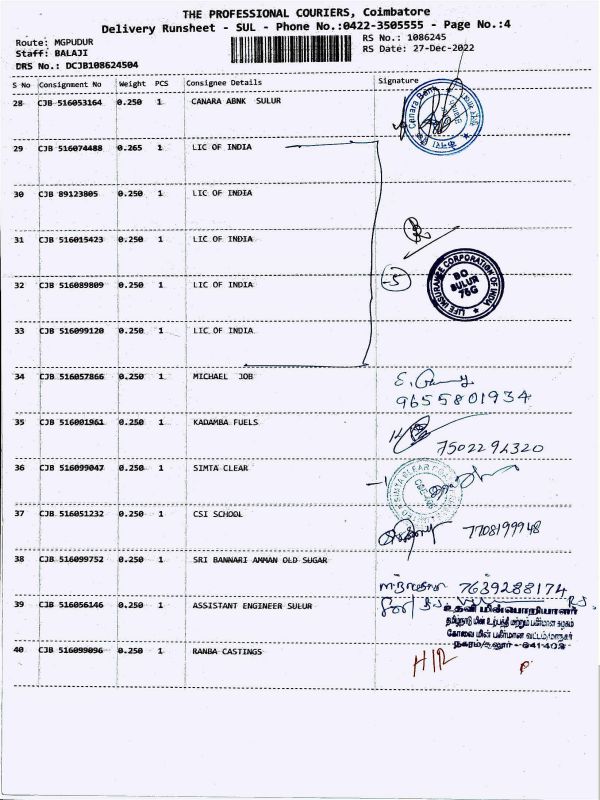 THE PROFESSIONAL COURIERS, Coimbatore
Delivery Runsheet - SUL - Phone No.:0422-3505555 - Page No.:4
Route: MGPUDUR
Staff: BALAJI
DRS No.: DCJB108624504
RS No.: 1086245
RS Date: 27-Dec-2022
S No Consignment No Weight PCS Consignee Details Signature
28 CJB 516053164 0.250 1 CANARA ABNK SULUR
Canara Bank
29 CJB 516074488 0.265 1 LIC OF INDIA
30 CJB 89123805 0.250 1 LIC OF INDIA
31 CJB 516015423 0.250 1 LIC OF INDIA
32 CJB 516089809 0.250 1 LIC OF INDIA
-5
LIFE INSURANCE CORPORATION OF INDIA
BO
SULUR
76G
33 CJB 516099120 0.250 1 LIC OF INDIA
34 CJB 516057866 0.250 1 MICHAEL JOB
9655801934
35 CJB 516001961 0.250 1 KADAMBA FUELS
7502294320
36 CJB 516099047 0.250 1 SIMTA CLEAR
SIMTA CLEAR
37 CJB 516051232 0.250 1 CSI SCHOOL
7708199948
38 CJB 516099752 0.250 1 SRI BANNARI AMMAN OLD SUGAR
7639288174
39 CJB 516056146 0.250 1 ASSISTANT ENGINEER SULUR
உதவி மின்பொறியாளர்
தமிழ்நாடு மின் உற்பத்தி மற்றும் பகிர்மான கழகம்
கோவை மின் பகிர்மான வட்டம்/மாநகர்
நகரம்/சூலூர் - 641402
40 CJB 516099096 0.250 1 RANBA CASTINGS
H12